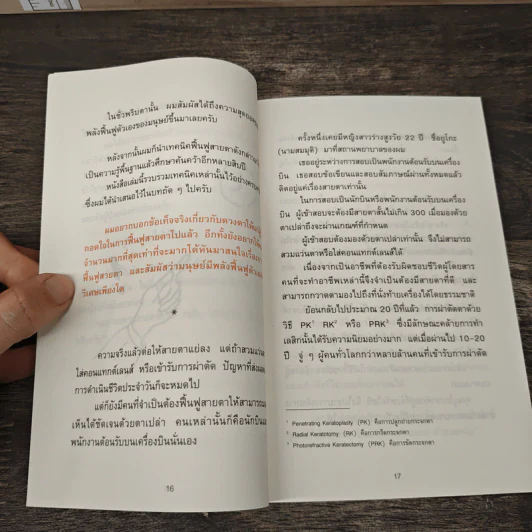 ในชั่วพริบตานั้น ผมสัมผัสได้ถึงความสุดยอดของ
พลังฟื้นฟูตัวเองของมนุษย์ขึ้นมาเลยครับ
หลังจากนั้นผมก็นำเทคนิคฟื้นฟูสายตาดังกล่าวมา
เป็นความรู้พื้นฐานแล้วศึกษาค้นคว้าอีกหลายสิบปี
หนังสือเล่มนี้รวบรวมเทคนิคเหล่านั้นไว้อย่าง
ซึ่งผมได้นำเสนอไว้ในบทถัด ๆ ไปครับ
ผมอยากบอกข้อเท็จจริงเกี่ยวกับดวงตาให้
ถอดใจในการฟื้นฟูสายตาไปแล้ว อีกทั้งยังอยากให้
จำนวนมากที่สุดเท่าที่จะมากได้หันมาสนใจเรื่อง
ฟื้นฟูสายตา และสัมผัสว่ามนุษย์มีพลังฟื้นฟูตัวเอง
วิเศษเพียงใด
ความจริงแล้วต่อให้สายตาแย่ลง แต่ถ้าสวมแว่น
ใส่คอนแทกต์เลนส์ หรือเข้ารับการผ่าตัด ปัญหาที่ส่งผล
การดำเนินชีวิตประจำวันก็จะหมดไป
แต่ก็ยังมีคนที่จำเป็นต้องฟื้นฟูสายตาให้สามารถมอง
เห็นได้ชัดเจนด้วยตาเปล่า คนเหล่านั้นก็คือนักบินและ
พนักงานต้อนรับบนเครื่องบินนั่นเอง
16
ครั้งหนึ่งเคยมีหญิงสาวร่างสูงวัย 22 ปี ชื่อยูโกะ
(นามสมมุติ) มาที่สถานพยาบาลของผม
เธออยู่ระหว่างการสอบเป็นพนักงานต้อนรับบนเครื่อง
บิน เธอสอบข้อเขียนและสอบสัมภาษณ์ผ่านทั้งหมดแล้ว
ติดอยู่แค่เรื่องสายตาเท่านั้น
ในการสอบเป็นนักบินหรือพนักงานต้อนรับบนเครื่อง
บิน ผู้เข้าสอบจะต้องมีสายตาสั้นไม่เกิน 300 เมื่อมองด้วย
ตาเปล่าถึงจะผ่านเกณฑ์ที่กำหนด
ผู้เข้าสอบต้องมองด้วยตาเปล่าเท่านั้น จึงไม่สามารถ
สวมแว่นตาหรือใส่คอนแทกต์เลนส์ได้
เนื่องจากเป็นอาชีพที่ต้องรับผิดชอบชีวิตผู้โดยสาร
คนที่จะทำอาชีพเหล่านี้จึงจำเป็นต้องมีสายตาที่ดี และ
สามารถกวาดตามองไปถึงที่นั่งท้ายเครื่องได้โดยธรรมชาติ
ย้อนกลับไปประมาณ 20 ปีที่แล้ว การผ่าตัดตาด้วย
วิธี PK¹ RK² หรือ PRK³ ซึ่งมีลักษณะคล้ายการทำ
เลสิกนั้นได้รับความนิยมอย่างมาก แต่เมื่อผ่านไป 10-20
ปี จู่ ๆ ผู้คนทั่วโลกกว่าหลายล้านคนที่เข้ารับการผ่าตัด
¹ Penetrating Keratoplasty (PK) คือการปลูกถ่ายกระจกตา
² Radial Keratotomy (RK) คือการกรีดกระจกตา
³ Photorefractive Keratectomy (PRK) คือการขัดกระจกตา
17